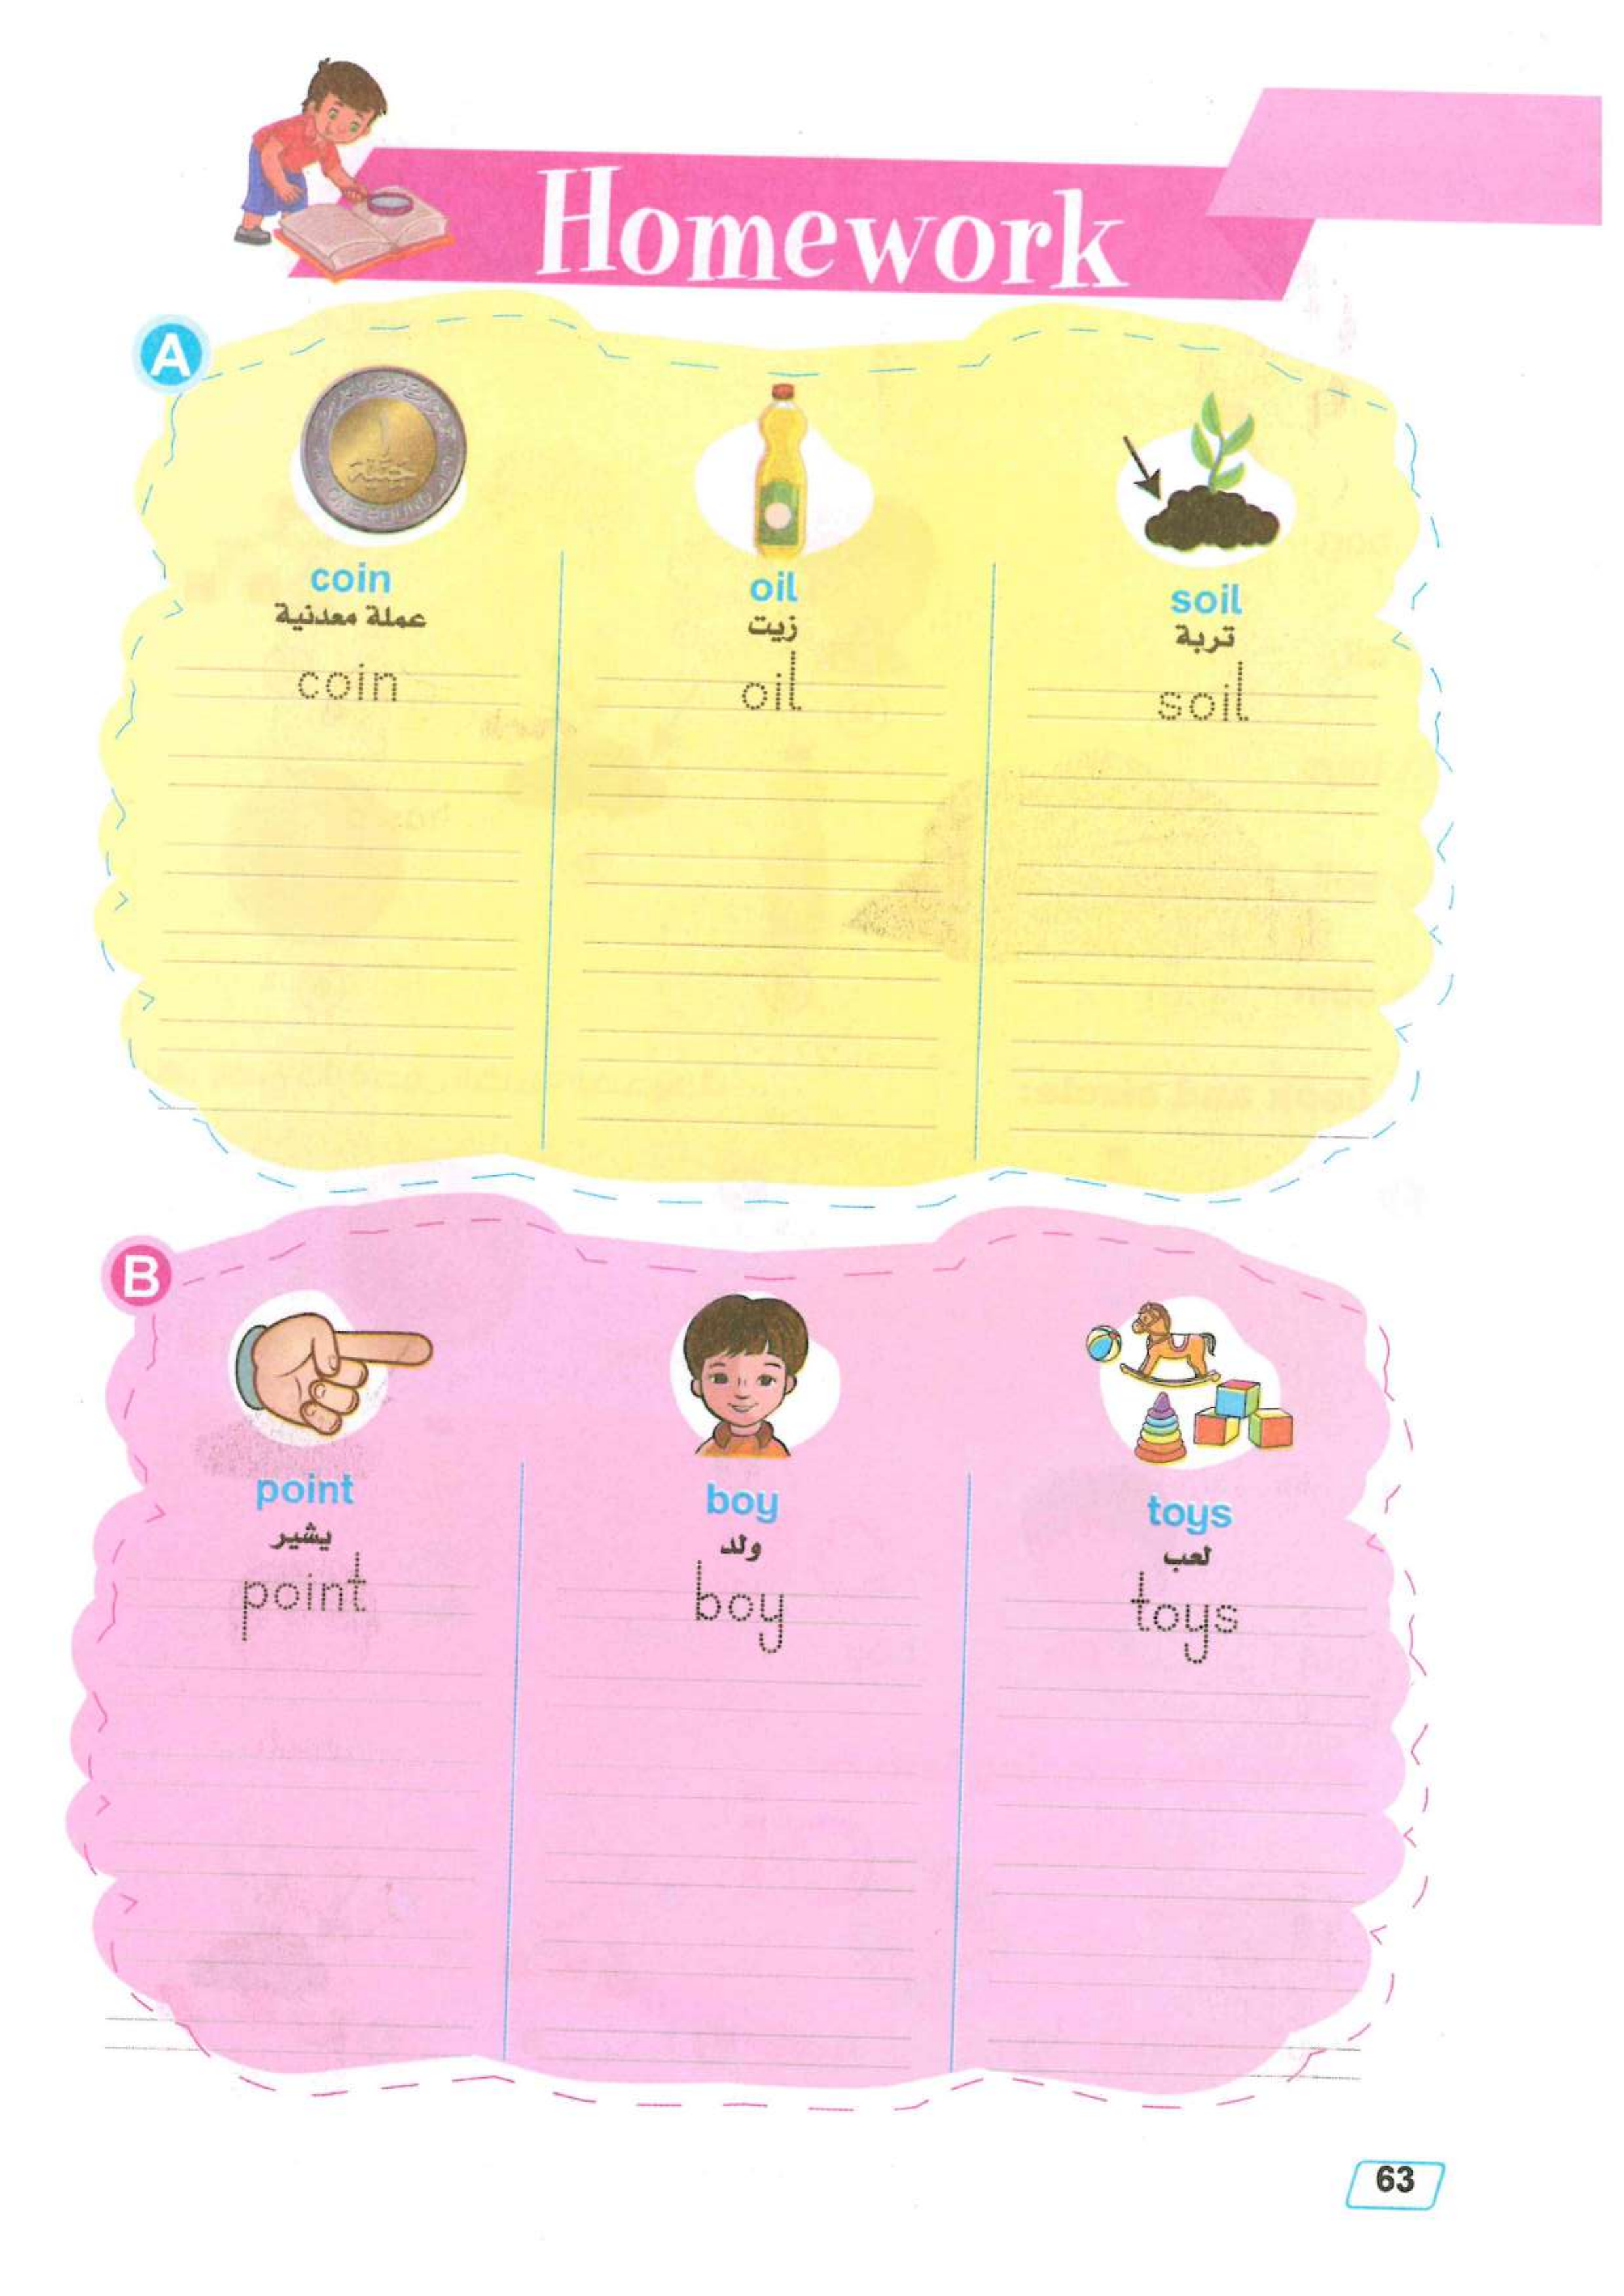 Homework
A
coin
عملة معدنية
coin
oil
زيت
oil
soil
تربة
soil
B
point
يشير
point
boy
ولد
boy
toys
لعب
toys
63